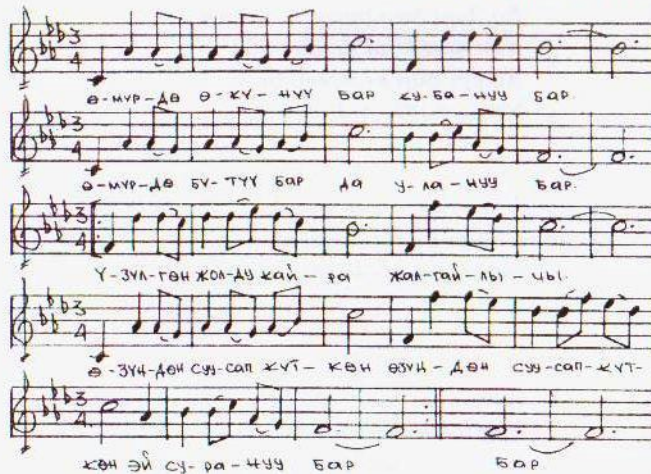 Ө-МҮР-ДӨ Ө-КҮ-НҮҮ БАР КУ-БА-НУУ БАР.
Ө-МҮР-ДӨ БҮ-ТҮҮ БАР ДА У-ЛА-НУУ БАР.
Ү-ЗҮЛ-ГӨН ЖОЛ-ДУ КАЙ-РА ЖАЛ-ГАЙ-ЛЫ-ЧЫ.
Ө-ЗҮҢ-ДӨН СУУ-САП КҮТ-КӨН ӨЗҮҢ-ДӨН СУУ-САП-КҮТ-
КӨН ЭЙ СУ-РА-НУУ БАР БАР